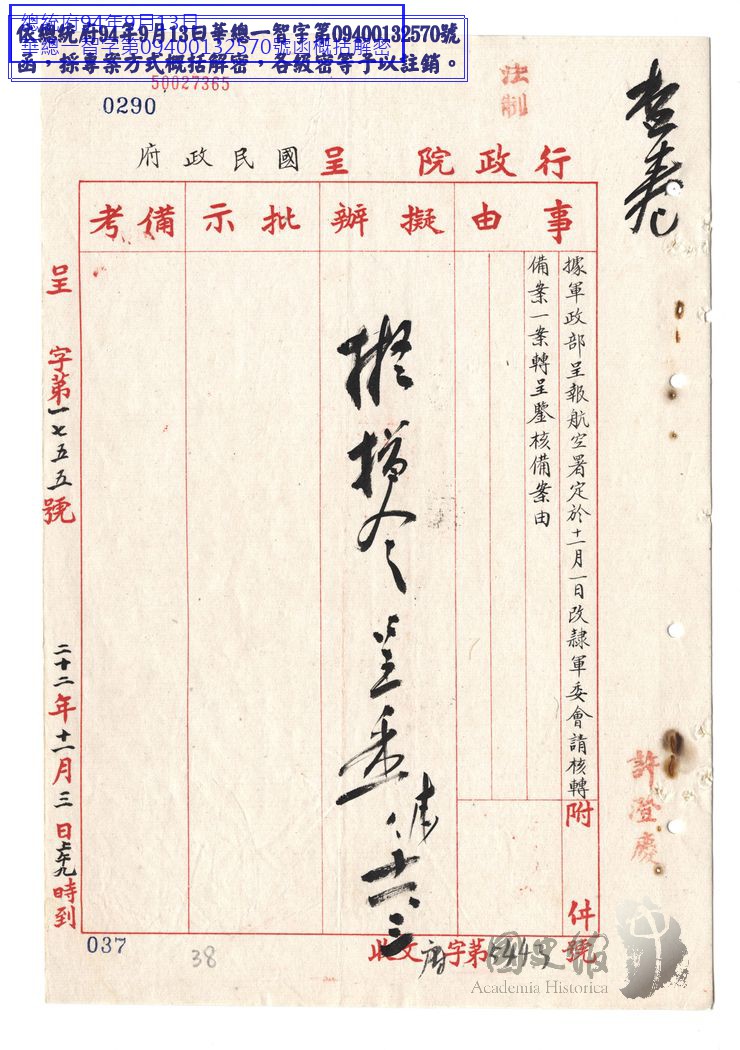 總統府94年9月13日
華總一智字第09400132570號函概括解密
依總統府94年9月13日華總一智字第09400132570號
函，採專案方式概括解密，各級密等予以註銷。
50027365
0290
法制
查卷
行政院 呈 國民政府
事由
擬辦
批示
備考
據軍政部呈報航空署定於十一月一日改隸軍委會請核轉
備案一案轉呈鑒核備案由
附件
擬指令
呈悉
十一、三
呈 字第一七五五號
二十二年十一月三日上午九時到
許澄慶
收文府字第5443號
037
38
國史館
Academia Historica